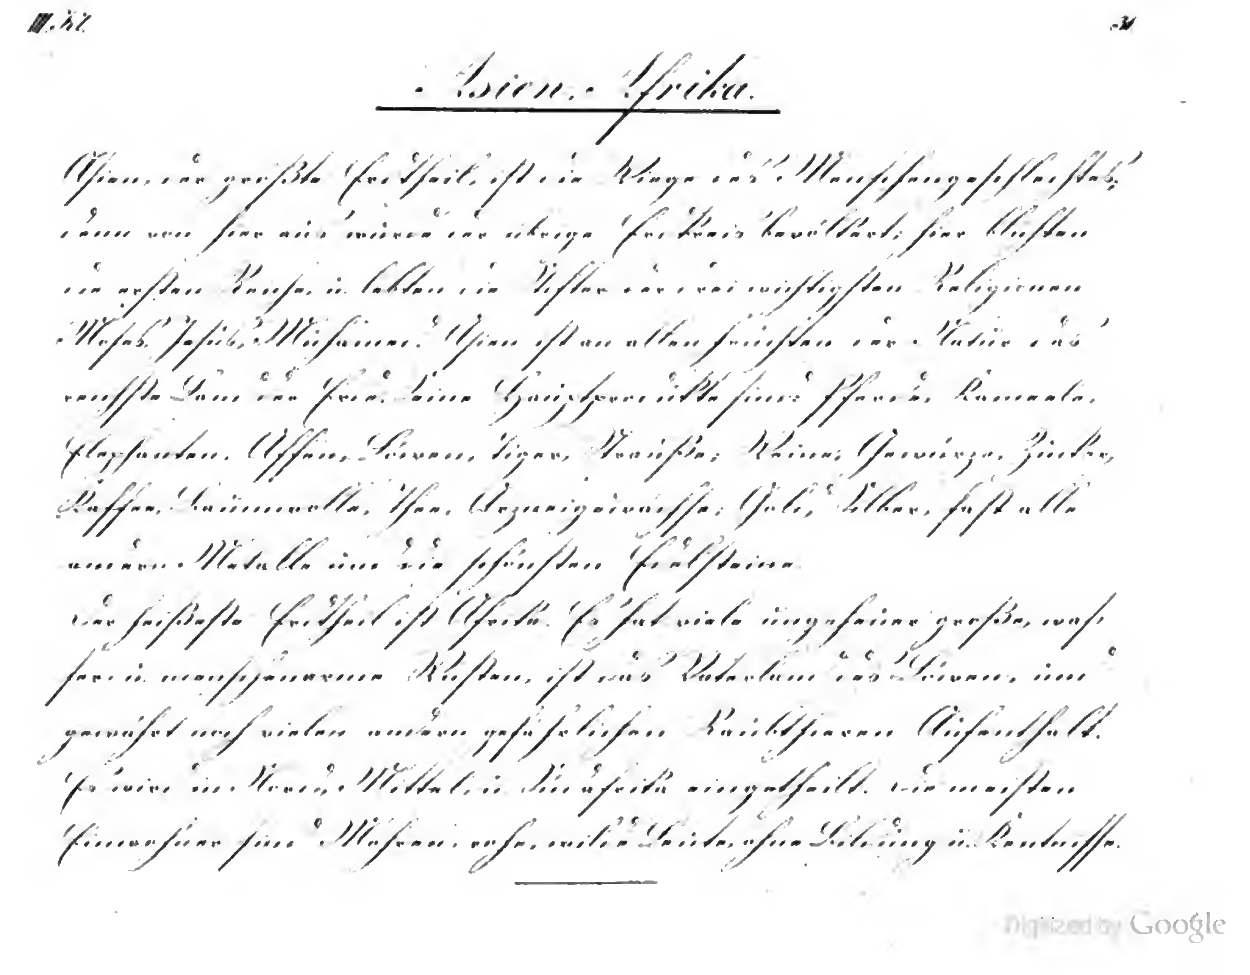 III. Kl.
31
Asien. Afrika.
Asien, der größte Erdtheil, ist die Wiege des Menschengeschlechtes;
denn von hier aus wurde der übrige Erdkreis bevölkert; hier blühten
die ersten Reiche, u. lebten die Stifter der drei wichtigsten Religionen
Moses, Jesus, Muhamed. Asien ist an allen Früchten der Natur das
reichste Land der Erde. Seine Hauptprodukte sind: Pferde, Kameele,
Elephanten, Affen, Löwen, Tiger, Strauße; Weine, Gewürze, Zucker,
Kaffee, Baumwolle, Thee, Arzneigewächse; Gold, Silber, fast alle
andern Metalle und die schönsten Edelsteine.
Der heißeste Erdtheil ist Afrika. Es hat viele ungeheuer große, was-
ser- u. menschenarme Wüsten, ist das Vaterland des Löwen, und
gewährt noch vielen andern gefährlichen Raubthieren Aufenthalt.
Es wird in Nord-, Mittel- u. Südafrika eingetheilt. Die meisten
Einwohner sind Mohren, rohe, wilde Leute, ohne Bildung u. Kentnisse.
Digitized by Google